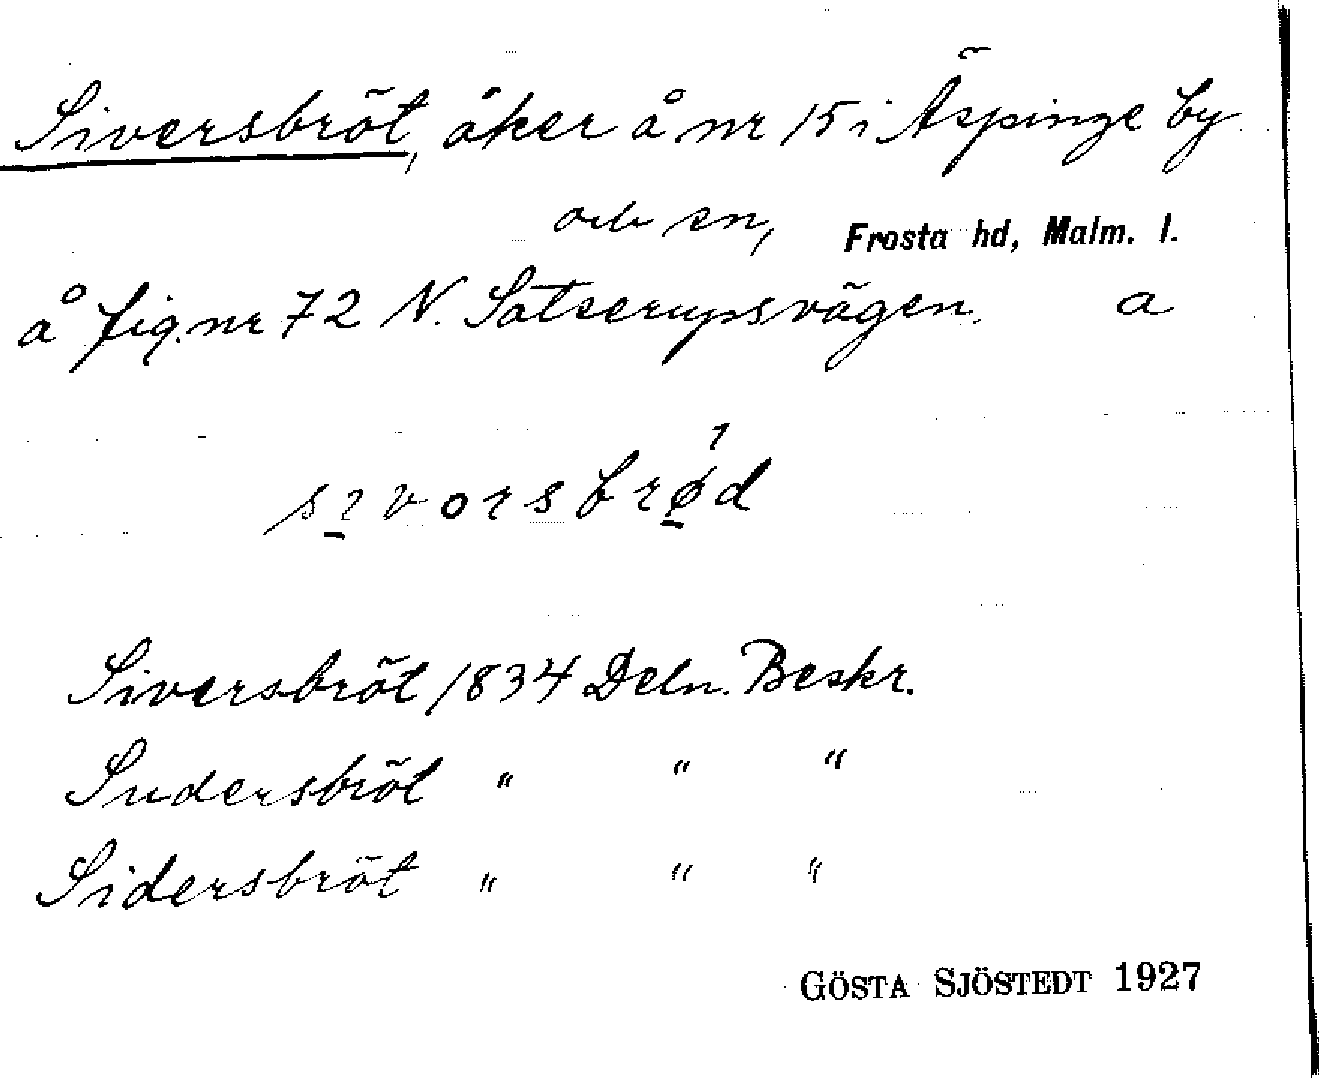 Siversbröt, åker å nr 15 i Äspinge by
och sn, Frosta hd, Malm. l.
å fig.nr 72 N. Satserupsvägen. a
Siversbröt 1834 Deln. Beskr.
Sudersbröt " " "
Sidersbröt " " "
GÖSTA SJÖSTEDT 1927